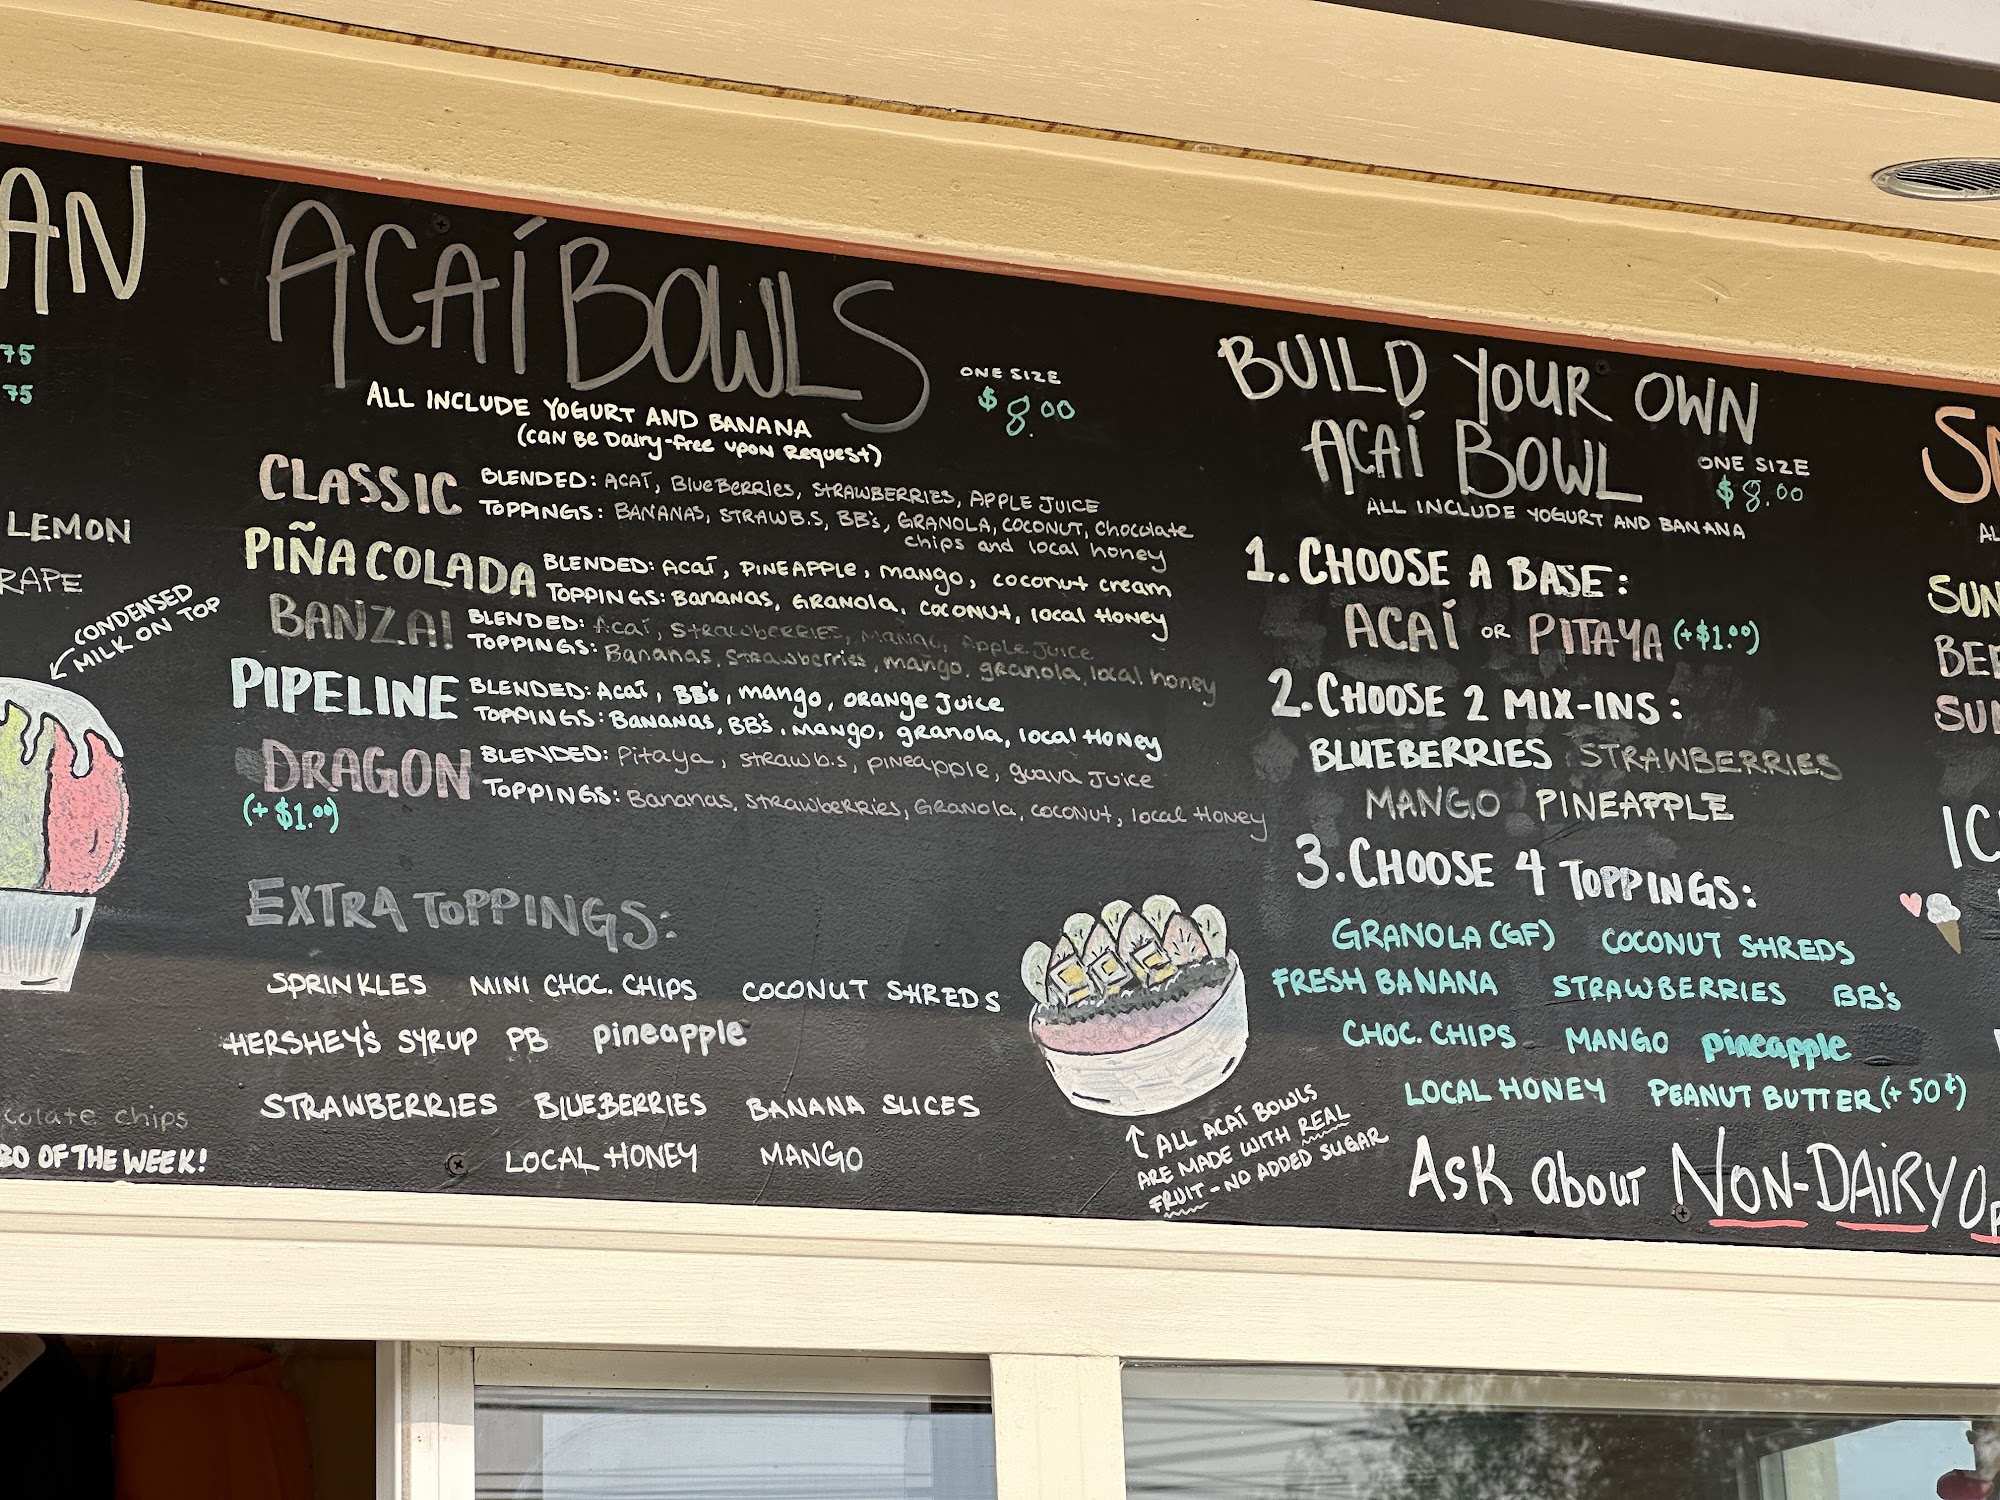 AN
75
75
LEMON
RAPE
CONDENSED
MILK ON TOP
colate chips
BO OF THE WEEK!
ACAÍ BOWLS
ONE SIZE
$8.00
ALL INCLUDE YOGURT AND BANANA
(CAN BE Dairy-free UPON REQUEST)
CLASSIC BLENDED: ACAÍ, BlueBerries, STRAWBERRIES, APPLE JUICE
TOPPINGS: BANANAS, STRAWB.S, BB's, GRANOLA, COCONUT, Chocolate
chips and local honey
PIÑA COLADA BLENDED: Acaí, PINEAPPLE, mango, coconut cream
TOPPINGS: Bananas, GRANOLA, COCONUT, local Honey
BANZAI BLENDED: Acaí, STRawbeRRIES, MANGO, Apple Juice
TOPPINGS: Bananas, strawberries, mango, granola, local honey
PIPELINE BLENDED: Acaí, BB's, mango, orange Juice
TOPPINGS: BANANAS, BB's, Mango, granola, local Honey
DRAGON BLENDED: Pitaya, strawb.s, pineapple, guava Juice
(+ $1.00) TOPPINGS: Bananas, strawberries, Granola, coconut, local Honey
EXTRA TOPPINGS:
SPRINKLES MINI CHOC. CHIPS COCONUT SHREDS
HERSHEY'S SYRUP PB pineapple
STRAWBERRIES BLUEBERRIES BANANA SLICES
LOCAL HONEY MANGO
ALL ACAÍ BOWLS
ARE MADE WITH REAL
FRUIT - NO ADDED SUGAR
BUILD YOUR OWN
ACAÍ BOWL
ONE SIZE
$8.00
ALL INCLUDE YOGURT AND BANANA
1. CHOOSE A BASE:
ACAÍ OR PITAYA (+$1.00)
2. CHOOSE 2 MIX-INS:
BLUEBERRIES STRAWBERRIES
MANGO PINEAPPLE
3. CHOOSE 4 TOPPINGS:
GRANOLA (GF) COCONUT SHREDS
FRESH BANANA STRAWBERRIES BB's
CHOC. CHIPS MANGO pineapple
LOCAL HONEY PEANUT BUTTER (+ 50¢)
Ask about NON-DAIRY OP
AL
SUN
BEE
SUN
IC